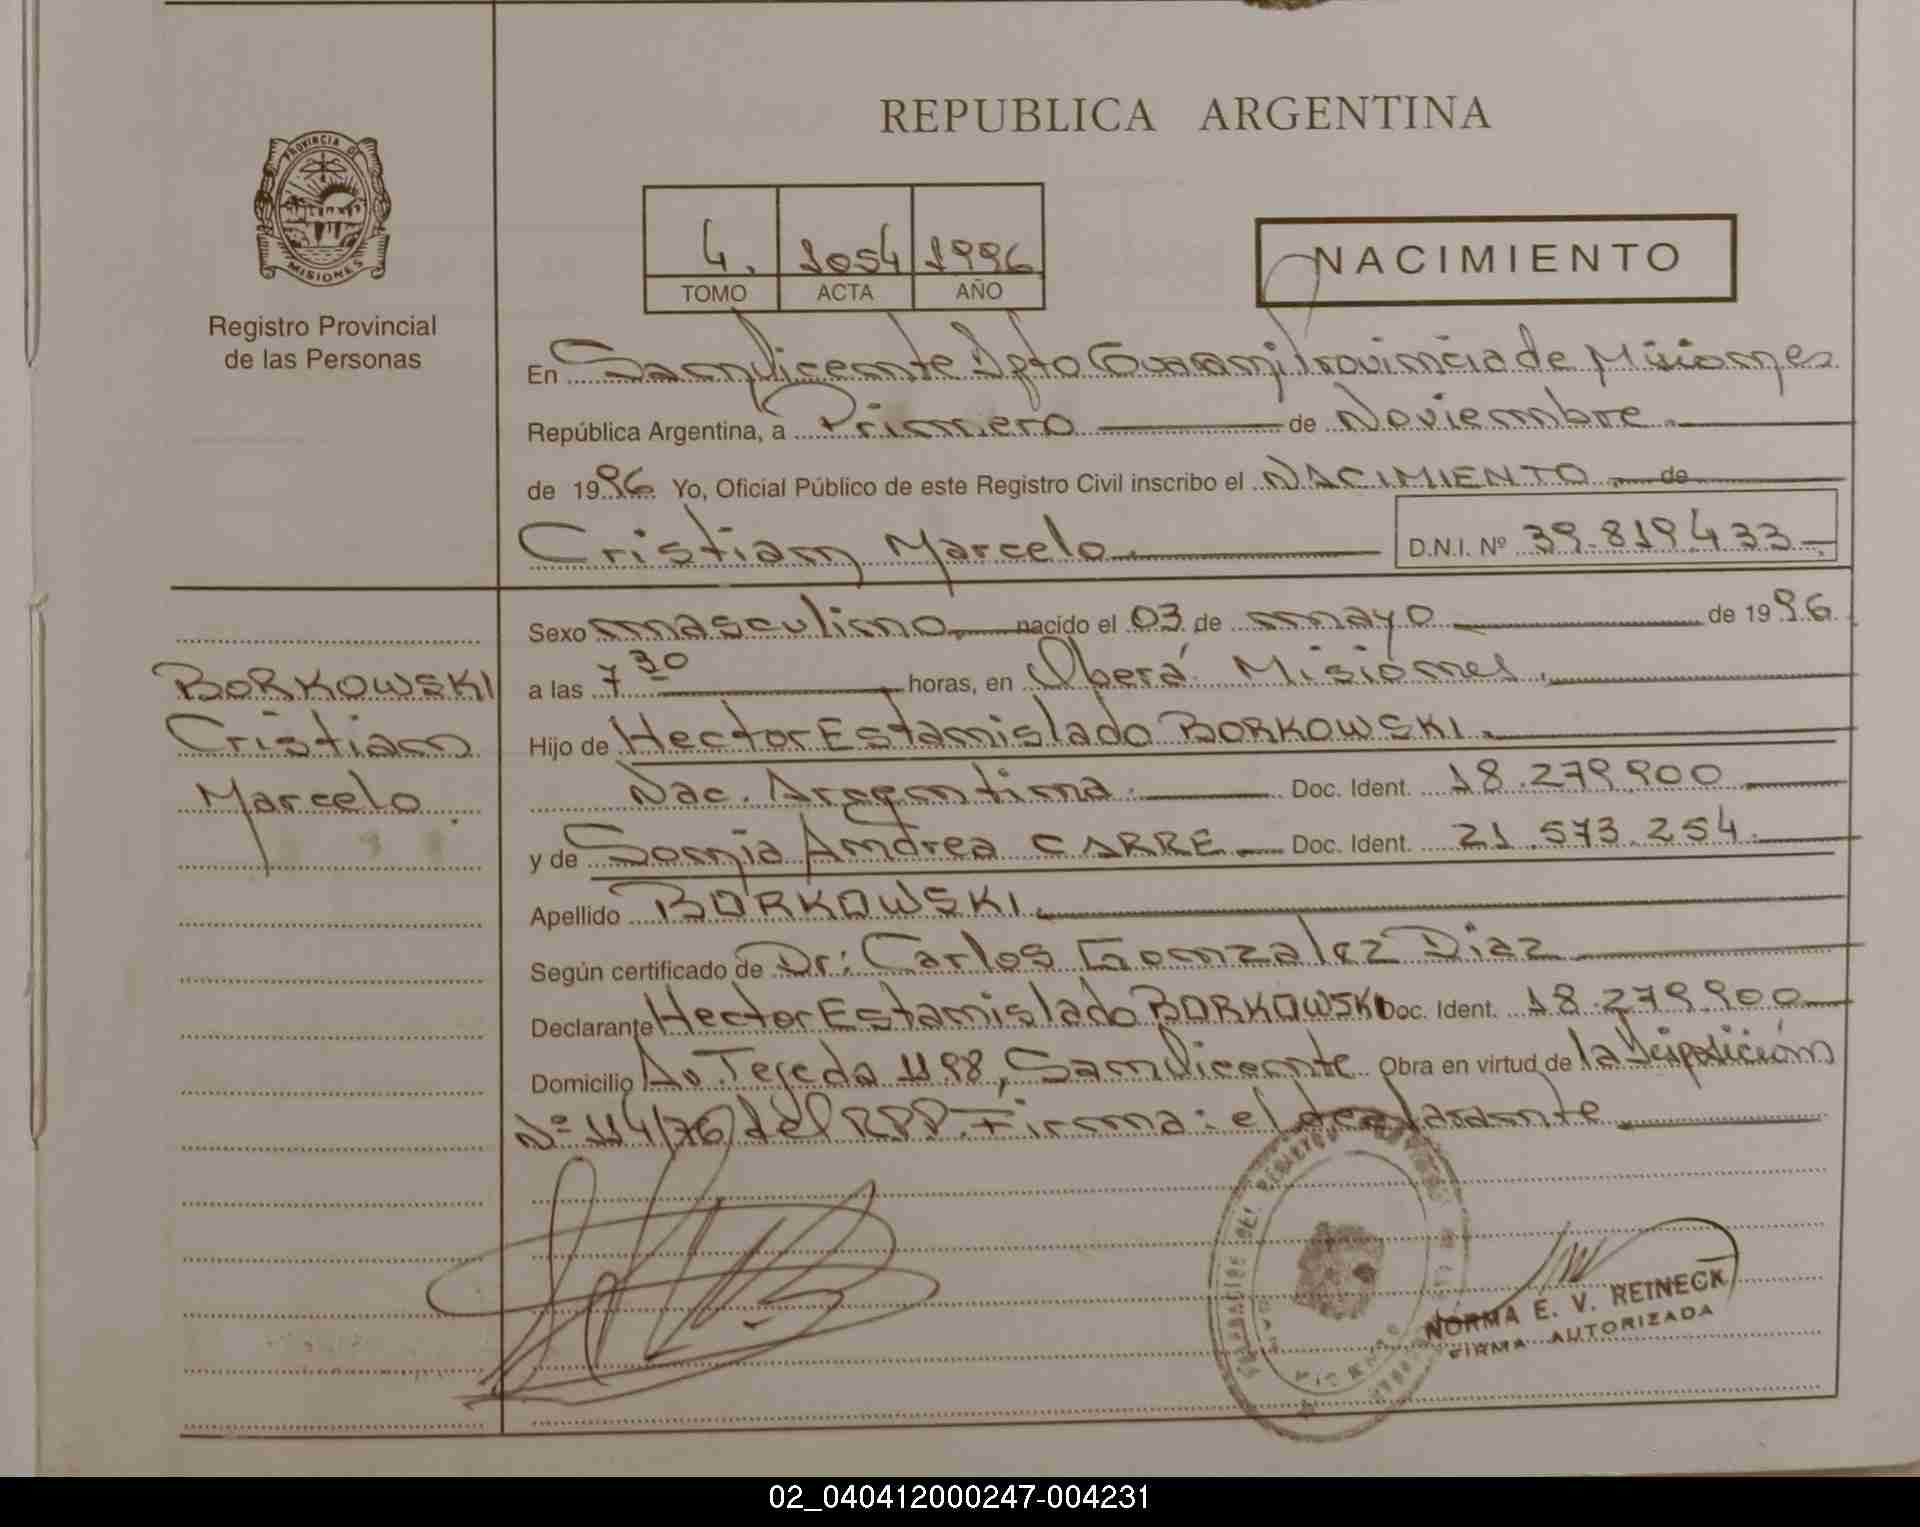 REPUBLICA ARGENTINA
PROVINCIA DE
MISIONES
Registro Provincial
de las Personas
4. 1054 1996
TOMO ACTA AÑO
NACIMIENTO
En San Vicente Dpto Guarani Provincia de Misiones
República Argentina, a Primero de Noviembre.
de 1996. Yo, Oficial Público de este Registro Civil inscribo el NACIMIENTO de
Cristian Marcelo. D.N.I. Nº 39.819.433
BORKOWSKI
Cristian
Marcelo.
Sexo masculino nacido el 03 de mayo de 1996.
a las 7 30 horas, en Oberá Misiones.
Hijo de Hector Estanislado BORKOWSKI.
Nac. Argentina. Doc. Ident. 18.279.900
y de Sonia Andrea CARRE Doc. Ident. 21.573.254.
Apellido BORKOWSKI.
Según certificado de Dr: Carlos Gonzalez Diaz
Declarante Hector Estanislado BORKOWSKI Doc. Ident. 18.279.900
Domicilio Av. Tejeda 1198, San Vicente Obra en virtud de la Disposición
Nº 114/76 del R.P.P. Firma: el declarante
NORMA E. V. REINECK
FIRMA AUTORIZADA
02_040412000247-004231